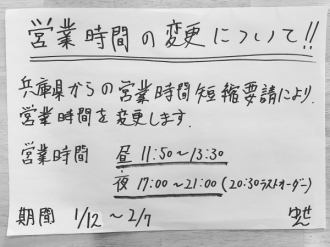 営業時間の変更について!!
兵庫県からの営業時間短縮要請により.
営業時間を変更します.
営業時間 昼 11:50~13:30
夜 17:00~21:00(20:30ラストオーダー)
期間 1/12~2/7